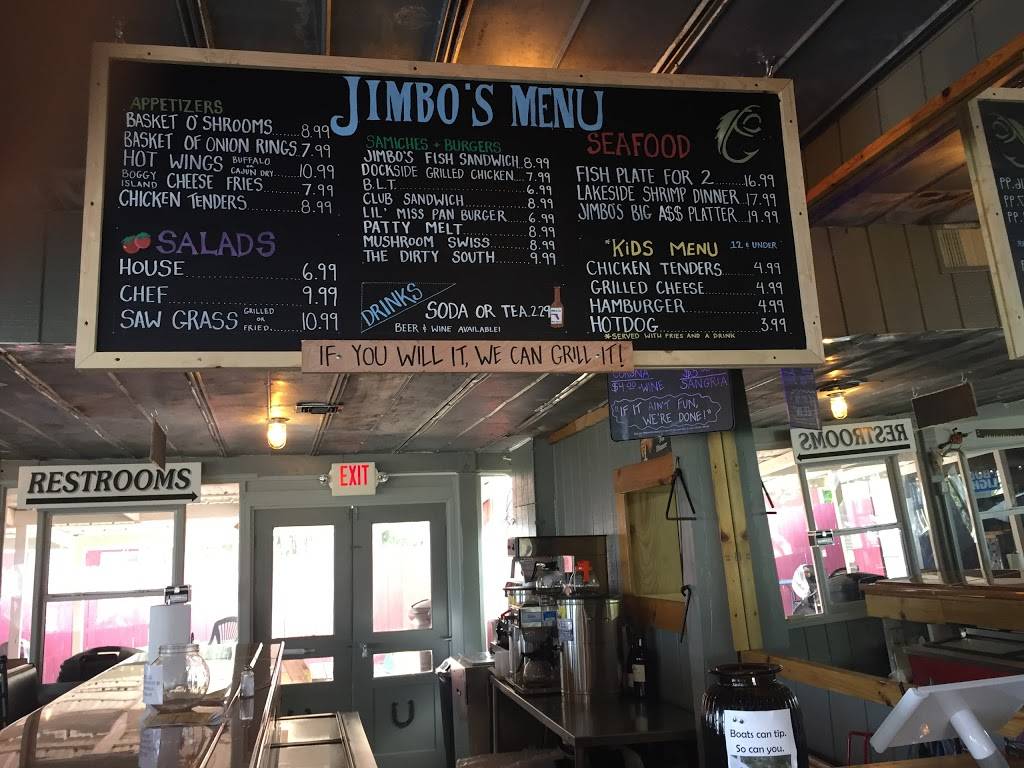 JIMBO'S MENU
APPETIZERS
BASKET O' SHROOMS.......8.99
BASKET OF ONION RINGS.7.99
HOT WINGS BUFFALO OR CAJUN DRY.....10.99
BOGGY ISLAND CHEESE FRIES.......7.99
CHICKEN TENDERS.........8.99
SALADS
HOUSE.......................6.99
CHEF.........................9.99
SAW GRASS GRILLED OR FRIED.....10.99
SAMICHES + BURGERS
JIMBO'S FISH SANDWICH.8.99
DOCKSIDE GRILLED CHICKEN...7.99
B.L.T.........................6.99
CLUB SANDWICH..........8.99
LIL' MISS PAN BURGER....6.99
PATTY MELT..............8.99
MUSHROOM SWISS.......8.99
THE DIRTY SOUTH.......9.99
DRINKS
SODA OR TEA.2.29
BEER & WINE AVAILABLE!
SEAFOOD
FISH PLATE FOR 2.....16.99
LAKESIDE SHRIMP DINNER.17.99
JIMBO'S BIG A$$ PLATTER..19.99
*KIDS MENU 12 & UNDER
CHICKEN TENDERS......4.99
GRILLED CHEESE........4.99
HAMBURGER............4.99
HOTDOG................3.99
*SERVED WITH FRIES AND A DRINK
IF YOU WILL IT, WE CAN GRILL IT!
CORONA
$4.00-WINE SANGRIA
"IF IT AIN'T FUN,
WE'RE DONE!"
RESTROOMS
EXIT
RESTROOMS
Boats can tip.
So can you.